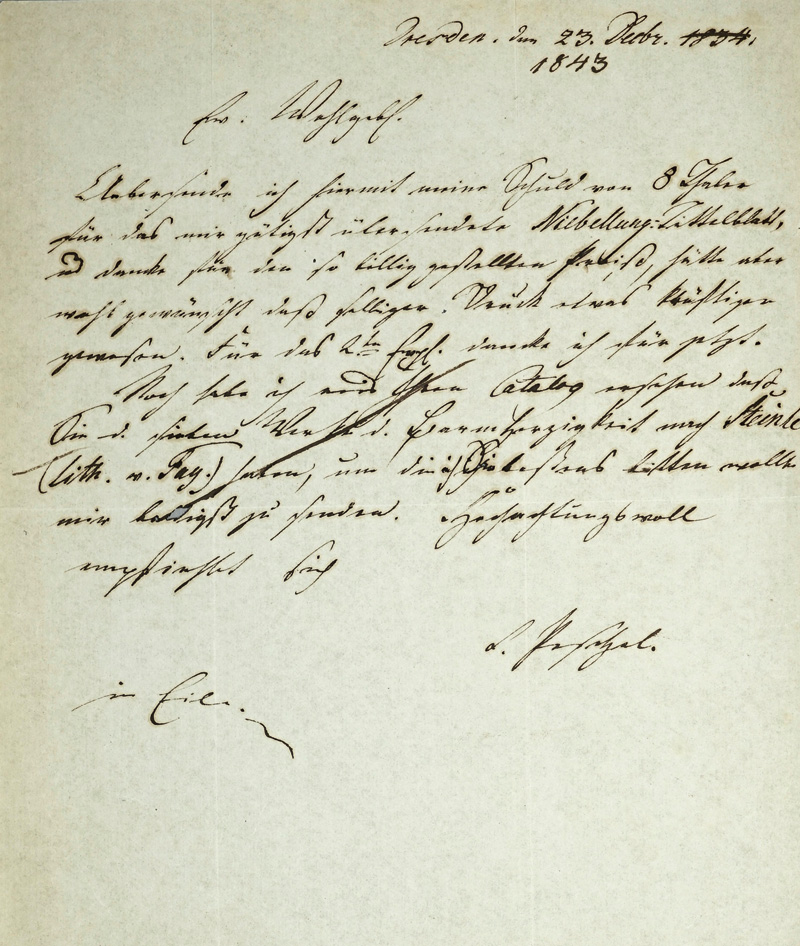 Dresden, den 23. Decbr. 1834.
1843
Ew: Wohlgeb.
Uebersende ich hiermit meine Schuld von 8 Thaler
für das mir gütigst übersendete Niebellung-Tittelblatt,
u danke für den so billig gestellten Preiß, hätte aber
wohl gewünscht daß selbiger Druck etwas kräftiger
gewesen. Für das 2te Expl. danke ich für jetzt.
Noch habe ich aus Ihren Catalog ersehen daß
Sie d. sieben Werke d. Barmherzigkeit nach Steinle
(lith. v. Fay.) haben, um die ich bestens bitten wollte
mir baldigst zu senden. Hochachtungsvoll
empfiehlt sich
C. Peschel.
in Eile.